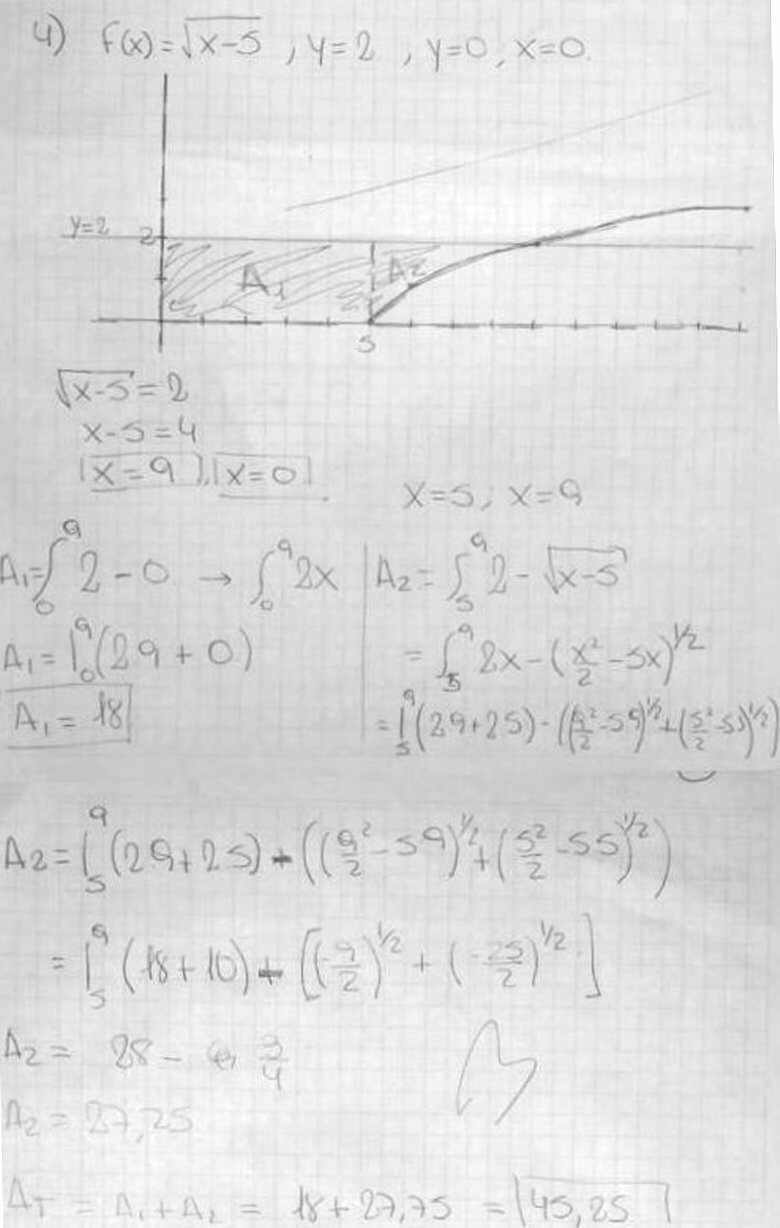 4) f(x)=√(x-5) , y=2 , y=0, x=0.
y=2 2
A₁ A2
5
√(x-5)=2
x-5=4
x=9, x=0.
x=5, x=9
A₁=∫₀⁹ 2-0 → ∫₀⁹ 2x
A₁=|₀⁹(2 9+0)
A₁=18
A₂=∫₅⁹ 2-√(x-5)
=∫₅⁹ 2x-(x²/2-5x)^1/2
=|₅⁹(2 9+2 5)-((9²/2-5 9)^1/2+(5²/2-5 5)^1/2)
A₂=|₅⁹(2 9+2 5)-((9²/2-5 9)^1/2+(5²/2-5 5)^1/2)
=|₅⁹(18+10)-[(-9/2)^1/2+(-25/2)^1/2]
A₂= 28- 3/4
A₂=27,25
A_T = A₁+A₂ = 18+27,75 = 45,25